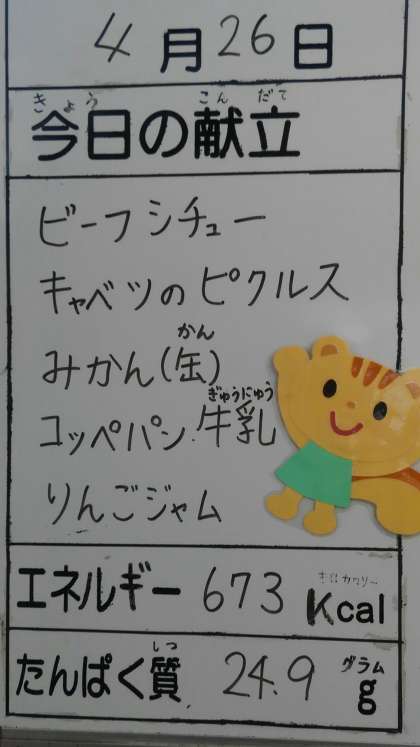 4月26日
きょう こんだて
今日の献立
ビーフシチュー
キャベツのピクルス
かん
みかん(缶)
ぎゅうにゅう
コッペパン 牛乳
りんごジャム
キロカロリー
エネルギー 673 Kcal
しつ グラム
たんぱく質 24.9 g